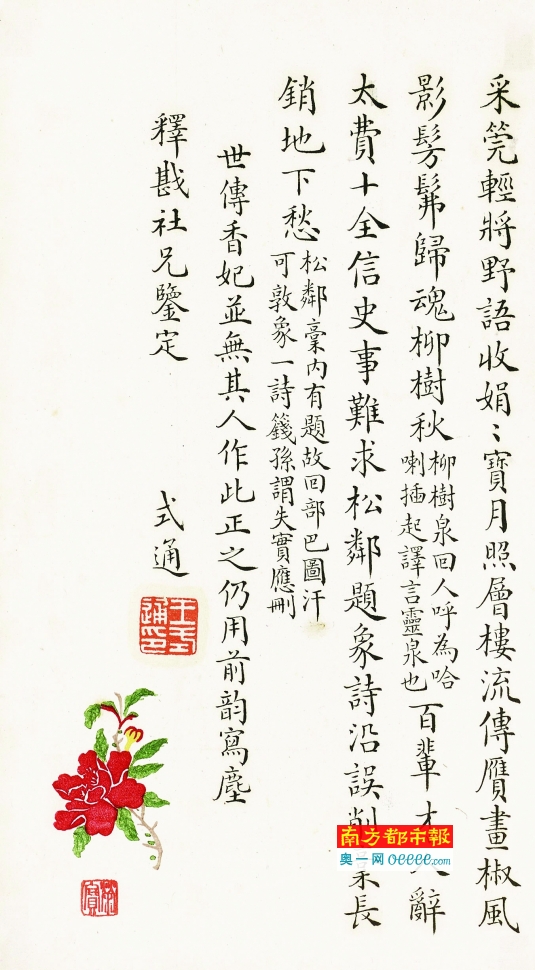 采箢輕將野語收娟〻寶月照層樓流傳贋畫椒風
影髣髴歸魂柳樹秋柳樹泉回人呼為哈
喇插起譯言靈泉也百輩
辭
太費十全信史事難求松鄰題象詩沿誤削
長
銷地下愁松鄰稾内有題故回部巴圖汗
可敦象一詩籛孫謂失實應刪
世傳香妃並無其人作此正之仍用前韵寫塵
釋戡社兄鑒定
式通
王式通印
南方都市報
奥一网 oeeee.com